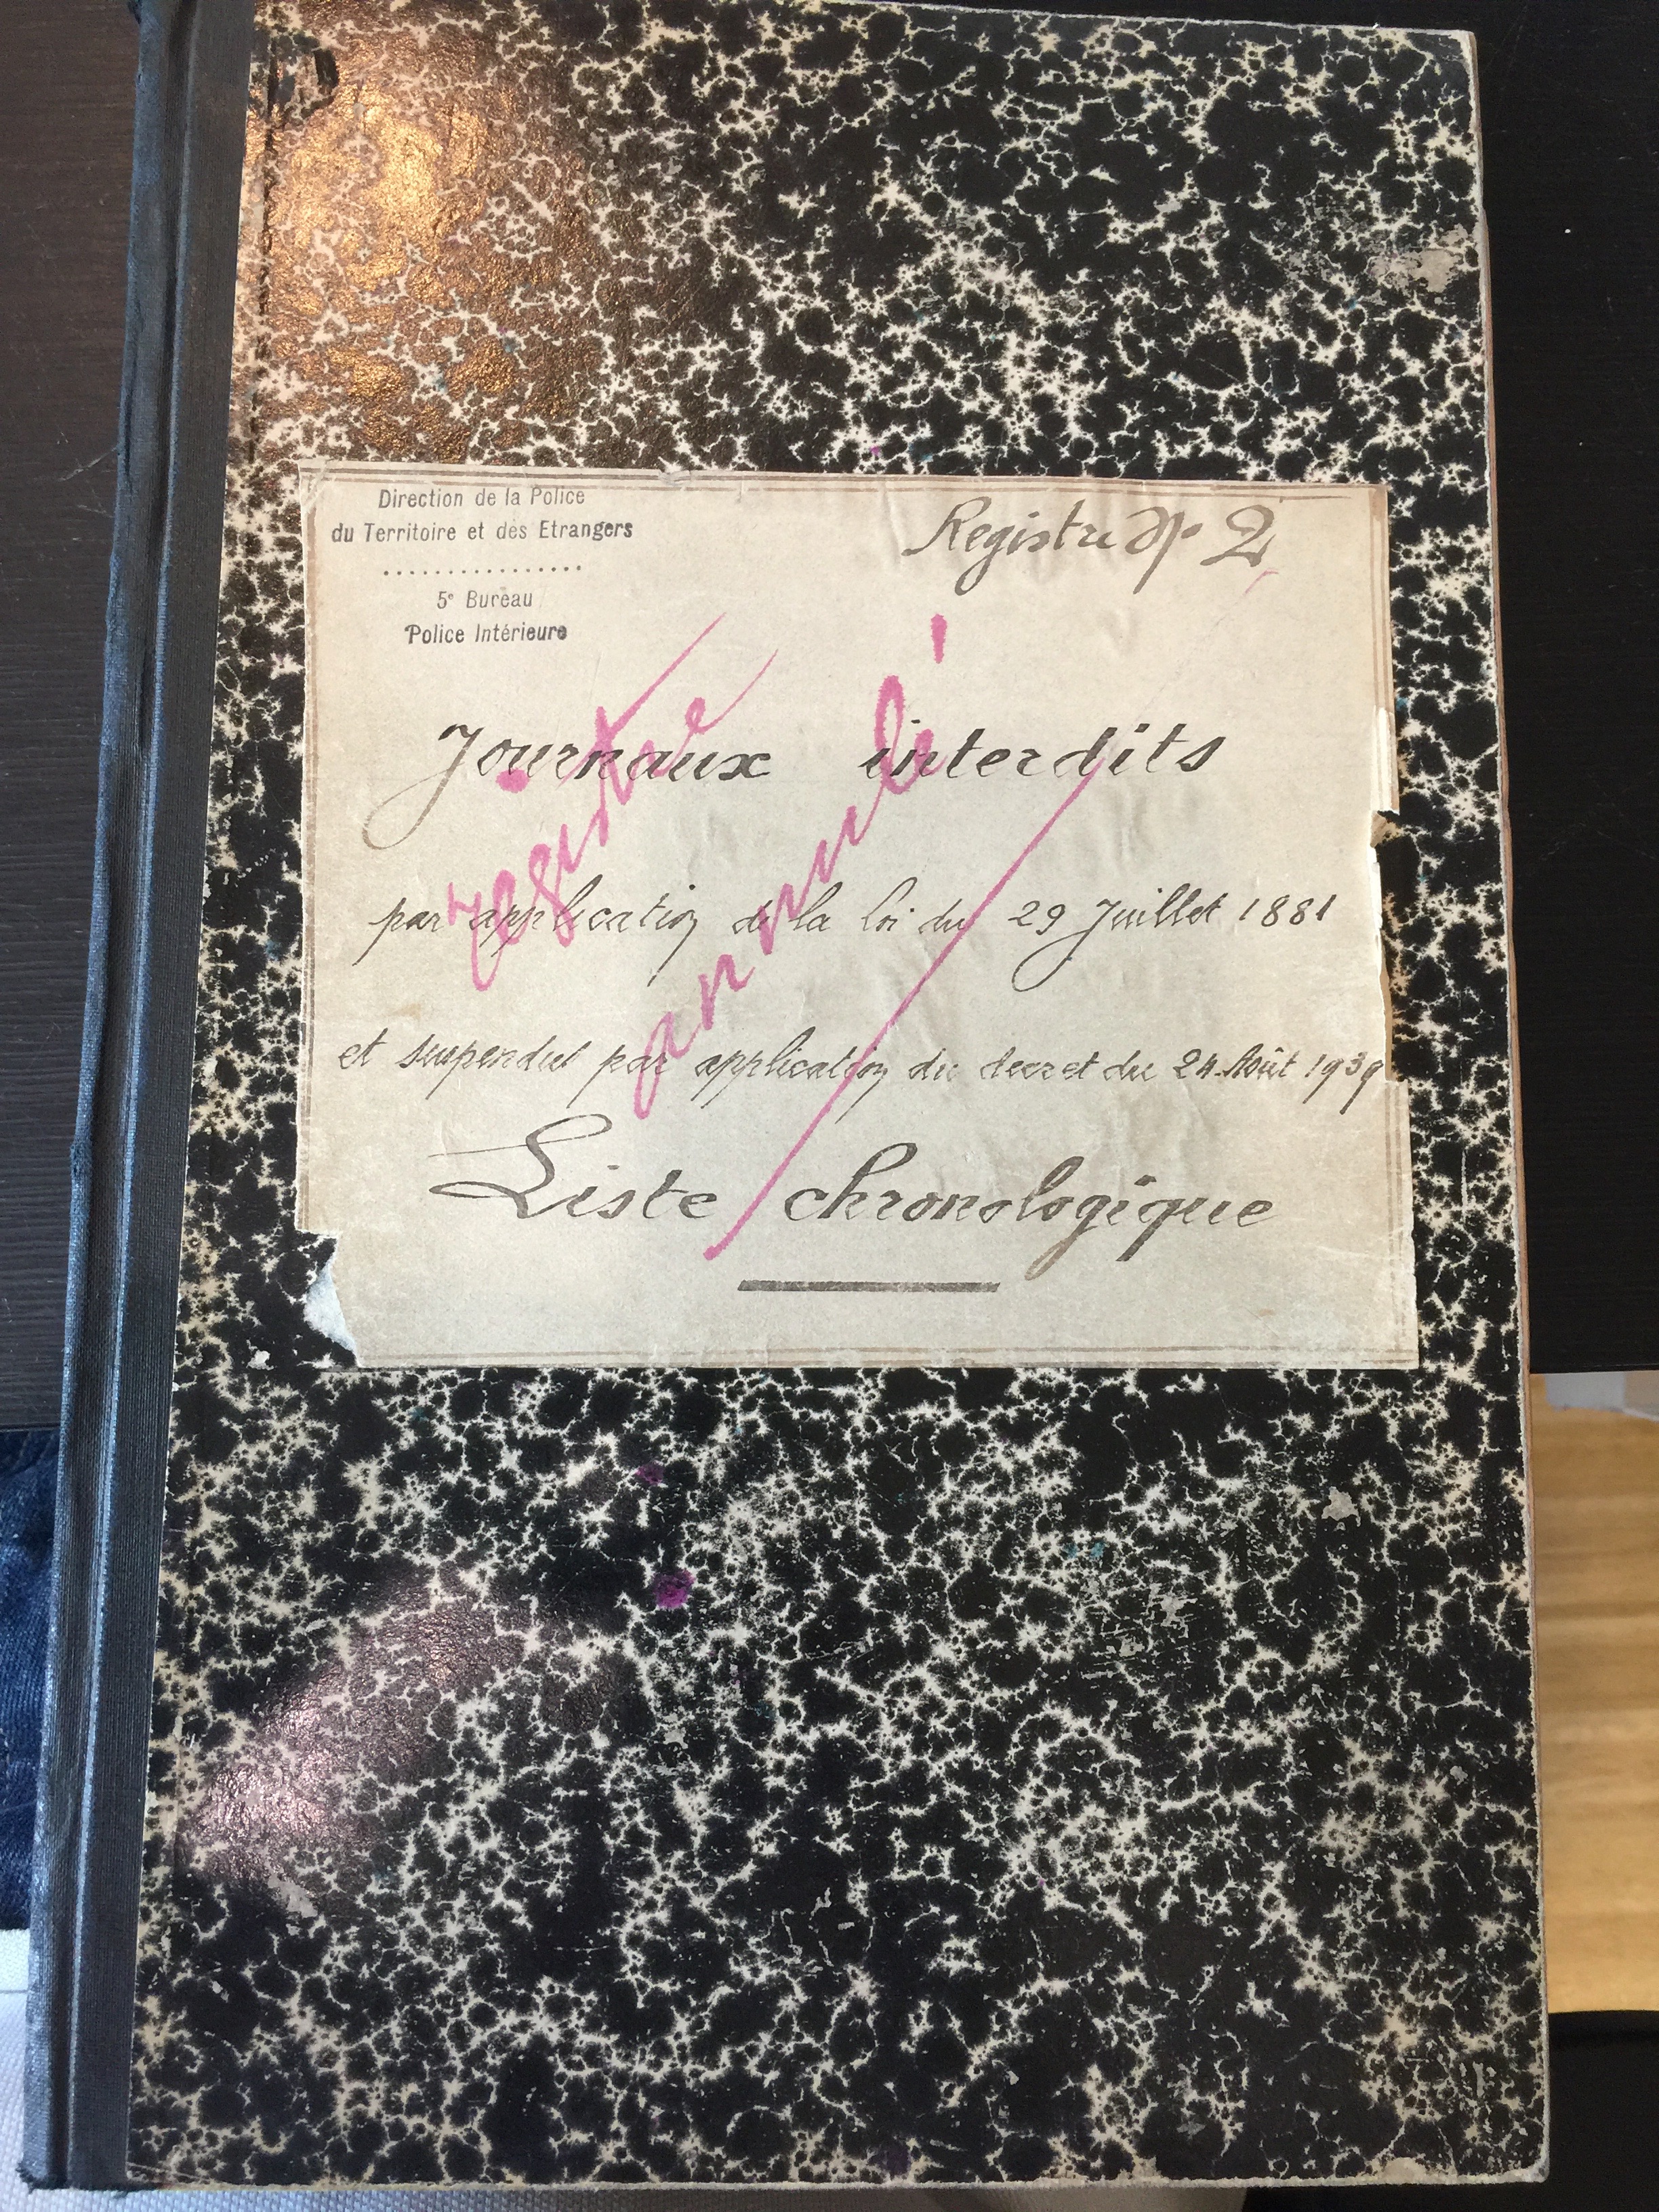 Direction de la Police
du Territoire et des Etrangers
5e Bureau
Police Intérieure
Registre No 2
Journaux interdits
par application de la loi du 29 Juillet 1881
et suspendus par application du decret du 24 Août 1939
Liste chronologique
registre
annulé